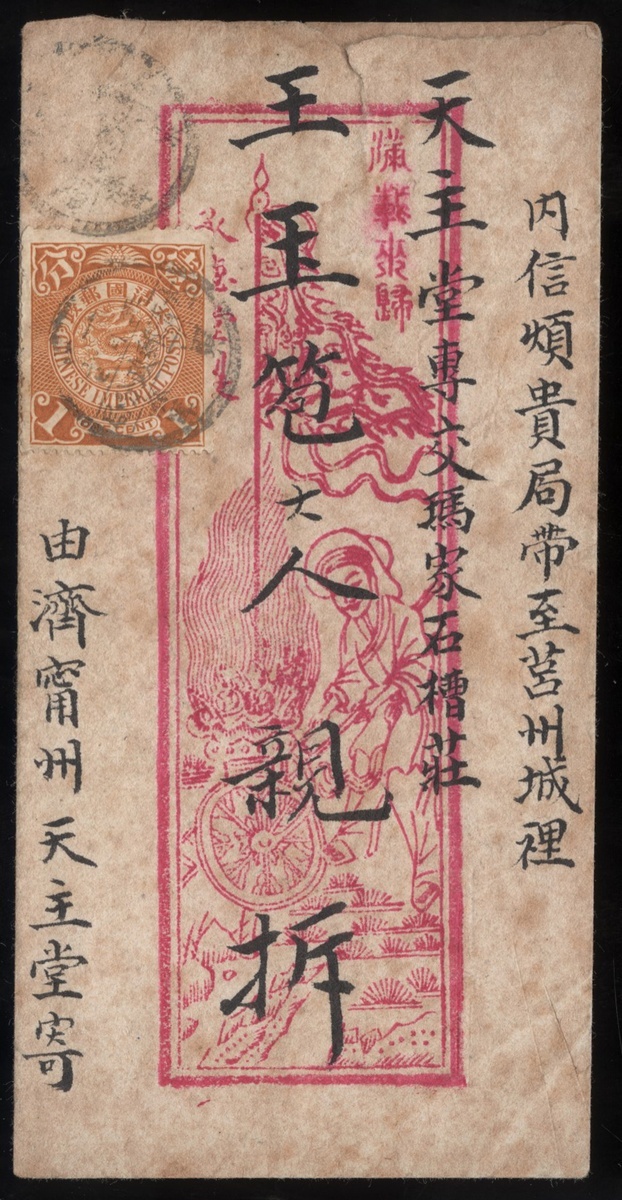 內信煩貴局帶至莒州城裡
天主堂專交馮家石槽莊
滿載來歸
王玉笣大人親拆
由濟甯州天主堂寄
大清國郵政
壹分
CHINESE IMPERIAL POST
1
ONE CENT
1